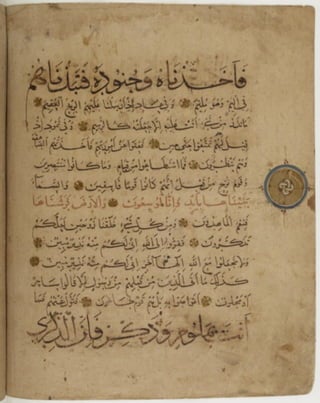 فَأَخَذْنَاهُ وَجُنُودَهُ فَنَبَذْنَاهُمْ
فِي الْيَمِّ وَهُوَ مُلِيمٌ وَفِي عَادٍ إِذْ أَرْسَلْنَا عَلَيْهِمُ الرِّيحَ الْعَقِيمَ
مَا تَذَرُ مِنْ شَيْءٍ أَتَتْ عَلَيْهِ إِلَّا جَعَلَتْهُ كَالرَّمِيمِ وَفِي ثَمُودَ إِذْ
قِيلَ لَهُمْ تَمَتَّعُوا حَتَّى حِينٍ فَعَتَوْا عَنْ أَمْرِ رَبِّهِمْ فَأَخَذَتْهُمُ الصَّاعِقَةُ
وَهُمْ يَنْظُرُونَ فَمَا اسْتَطَاعُوا مِنْ قِيَامٍ وَمَا كَانُوا مُنْتَصِرِينَ
وَقَوْمَ نُوحٍ مِنْ قَبْلُ إِنَّهُمْ كَانُوا قَوْمًا فَاسِقِينَ وَالسَّمَاءَ
بَنَيْنَاهَا بِأَيْيدٍ وَإِنَّا لَمُوسِعُونَ وَالْأَرْضَ فَرَشْنَاهَا
فَنِعْمَ الْمَاهِدُونَ وَمِنْ كُلِّ شَيْءٍ خَلَقْنَا زَوْجَيْنِ لَعَلَّكُمْ
تَذَكَّرُونَ فَفِرُّوا إِلَى اللَّهِ إِنِّي لَكُمْ مِنْهُ نَذِيرٌ مُبِينٌ
وَلَا تَجْعَلُوا مَعَ اللَّهِ إِلَهًا آخَرَ إِنِّي لَكُمْ مِنْهُ نَذِيرٌ مُبِينٌ
كَذَلِكَ مَا أَتَى الَّذِينَ مِنْ قَبْلِهِمْ مِنْ رَسُولٍ إِلَّا قَالُوا سَاحِرٌ
أَوْ مَجْنُونٌ أَتَوَاصَوْا بِهِ بَلْ هُمْ قَوْمٌ طَاغُونَ فَتَوَلَّ عَنْهُمْ فَمَا
أَنْتَ بِمَلُومٍ وَذَكِّرْ فَإِنَّ الذِّكْرَى